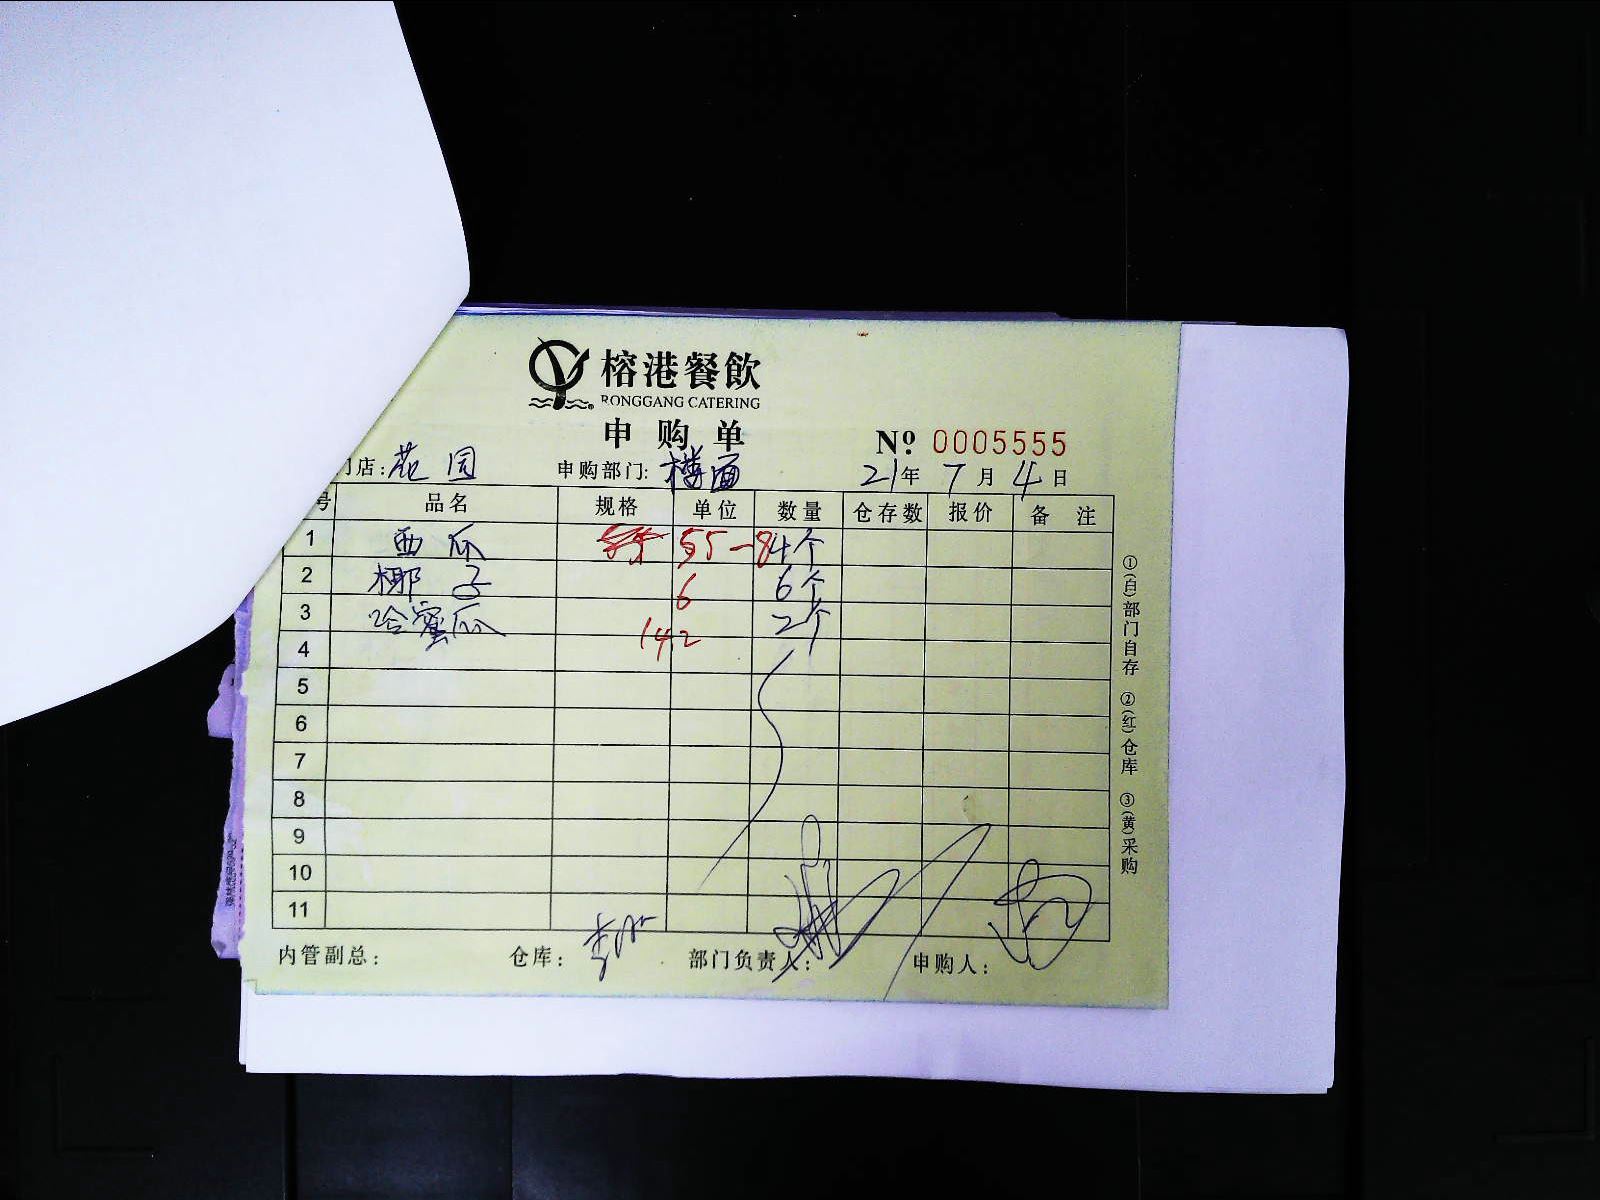 榕港餐飲
RONGGANG CATERING
申购单
№ 0005555
门店: 花园 申购部门: 楼面 21年 7月 4日
号 品名 规格 单位 数量 仓存数 报价 备注
1 西瓜 55-8 4个
2 椰子 6 6个
3 哈蜜瓜 14.2 2个
4
5
6
7
8
9
10
11
内管副总: 仓库: 部门负责人: 申购人:
①(白)部门自存 ②(红)仓库 ③(黄)采购